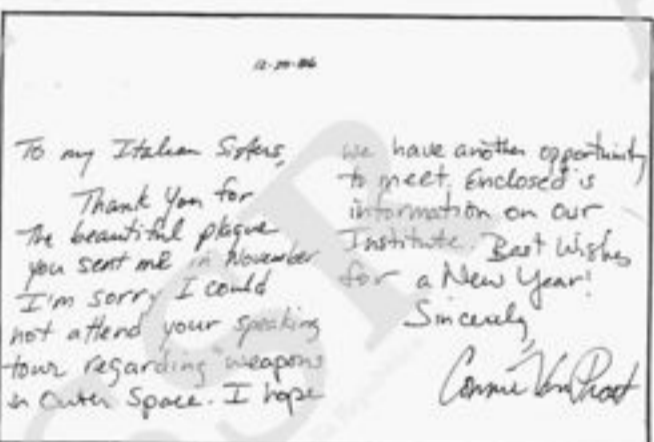 12-20-86
To my Italian Sisters,
Thank You for
the beautiful plaque
you sent me in November
I'm sorry I could
not attend your speaking
tour regarding weapons
in Outer Space. I hope
we have another opportunity
to meet. Enclosed is
information on our
Institute. Best Wishes
for a New Year!
Sincerely,
Connie Van Praet